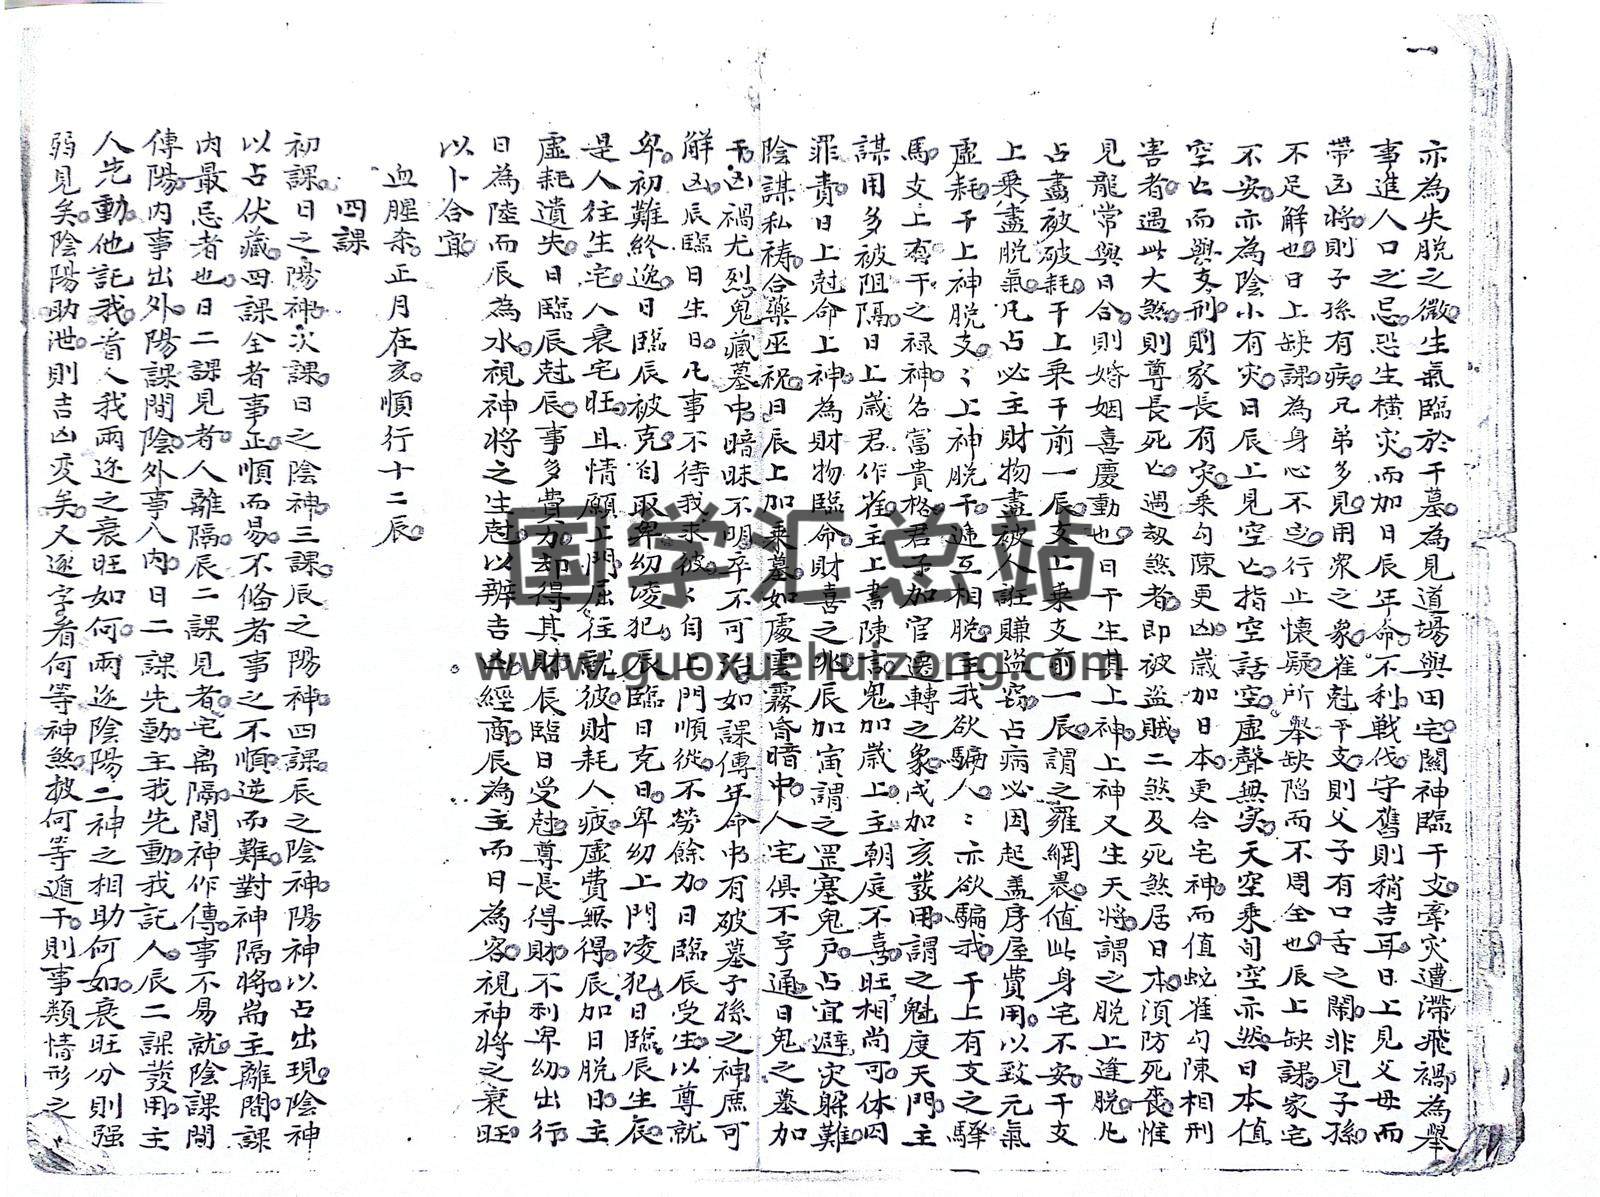 一
亦為失脫之微生氣臨於干墓為見道場與田宅關神臨干支牽災遭滯飛禍為舉
事進人口之忌恐生橫灾而加日辰年命不利戰伐守舊則稍吉耳日上見父母而
帶凶將則子孫有疾兄弟多見用眾之象雀尅干支則父子有口舌之鬧非見子孫
不足解也日上缺課為身心不寍行止懷疑所舉缺陷而不周全也辰上缺課家宅
不安亦為陰小有灾日辰上見空亡指空話空虛聲無实天空乘旬空亦然日本值
空亡而與支刑則家長有灾乘勾陳更凶歲加日本更合宅神而值蛇雀勾陳相刑
害者遇此大煞則尊長死亡遇劫煞者即被盜賊二煞及死煞居日本須防死喪惟
見龍常與日合則婚姻喜慶動也日干生其上神上神又生天將謂之脫上逢脫凡
占盡被破耗干上乘干前一辰支上乘支前一辰謂之羅網晨值此身宅不安干支
上乘盡脫氣凡占必主財物盡被人誑賺盜窃占病必因起盖房屋費用以致元氣
虛耗干上神脫支〻上神脫干遞互相脫主我欲騙人〻亦欲騙我干上有支之驛
馬支上有干之禄神名富貴格君子加官遷轉之象戌加亥發用謂之魁度天門主
謀用多被阻隔日上歲君作雀主上書陳言鬼加歲上主朝庭不喜旺相尚可休囚
罪責日上尅命上神為財物臨命財喜之兆辰加寅謂之罡塞鬼戶占宜避灾躲難
陰謀私禱合藥巫祝日辰上加乘墓如處雲霧昏暗中人宅俱不亨通日鬼之墓加
干凶禍尤烈鬼藏墓中暗昧不明卒不可治如課傳年命中有破墓子孫之神庶可
解凶辰臨日生日凡事不待我求彼〻自上門順從不勞餘力日臨辰受生以尊就
卑初難終逸日臨辰被克自取卑幼凌犯辰臨日克日卑幼上門凌犯日臨辰生辰
是人往生宅人衰宅旺且情願上門屈往就彼財耗人疲虛費無得辰加日脫日主
虛耗遺失日臨辰尅辰事多費力却得其財辰臨日受尅尊長得財不利卑幼出行
日為陸而辰為水視神將之生尅以辨吉凶經商辰為主而日為客視神將之衰旺
以卜合宜
血腥杀正月在亥順行十二辰
四課
初課日之陽神次課日之陰神三課辰之陽神四課辰之陰神陽神以占出現陰神
以占伏藏四課全者事正順而易不俻者事之不順逆而難對神隔將耑主離間課
內最忌者也日二課見者人離隔辰二課見者宅离隔間神作傳事不易就陰課間
傳陽內事出外陽課間陰外事八內日二課先動主我先動我託人辰二課發用主
人先動他託我看人我兩途之衰旺如何兩途陰陽二神之相助何如衰旺分則强
弱見矣陰陽助泄則吉凶変矣又逐字看何等神煞披何等遁干則事類情形之
国学汇总站
www.guoxuehuizong.com